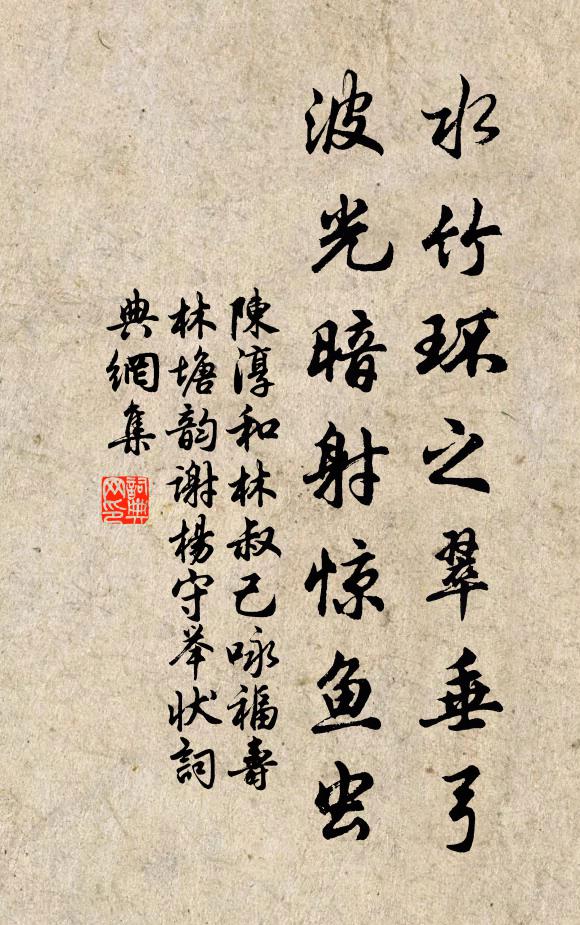 水竹环之翠垂弓
波光暗射惊鱼虫
陳淳和林叔己咏福壽
林塘韵谢楊守举状詞
典網集
詞典网印